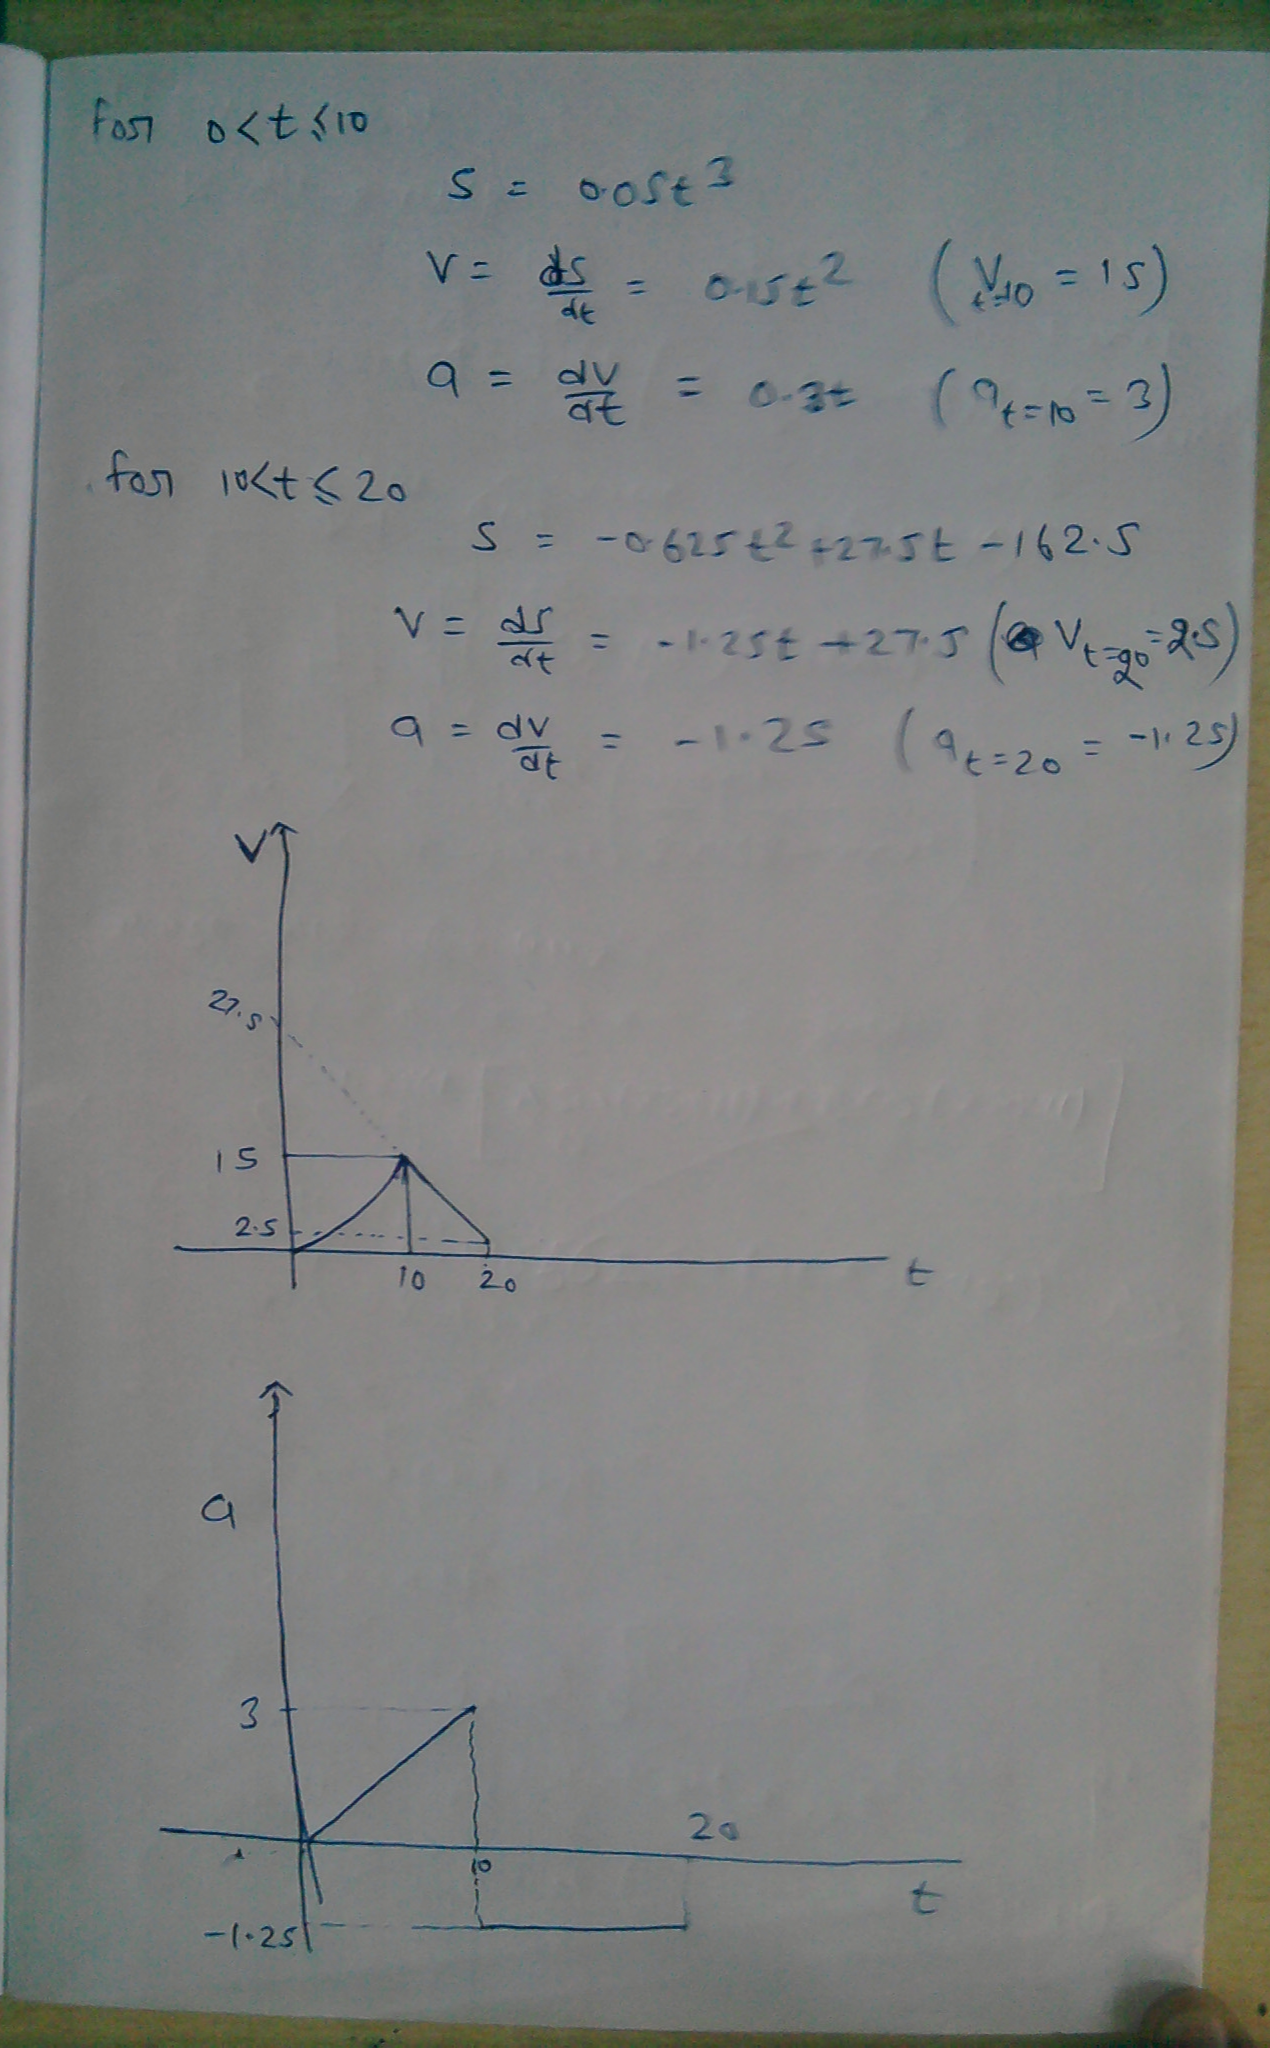 For 0<t≤10
S = 0.05t³
V = ds/dt = 0.15t² (V t=10 = 15)
a = dv/dt = 0.3t (a t=10 = 3)
for 10<t≤20
S = -0.625t²+27.5t-162.5
V = ds/dt = -1.25t+27.5 (V t=20 = 2.5)
a = dv/dt = -1.25 (a t=20 = -1.25)
V
27.5
15
2.5
10 20 t
a
3
20
10
t
-1.25